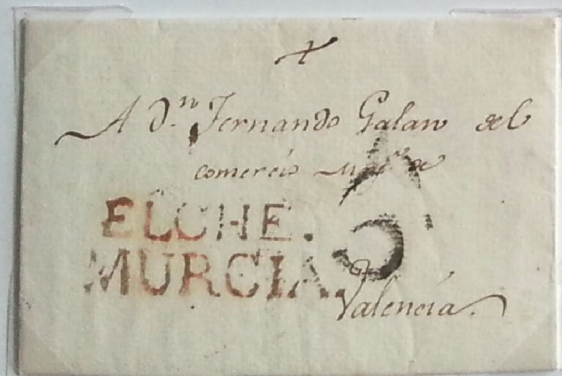 A D.n Fernando Galan del
comercio de
ELCHE.
MURCIA.
5
Valencia.